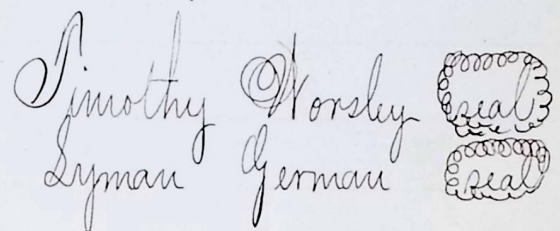 Timothy Worsley seal
Lyman German seal